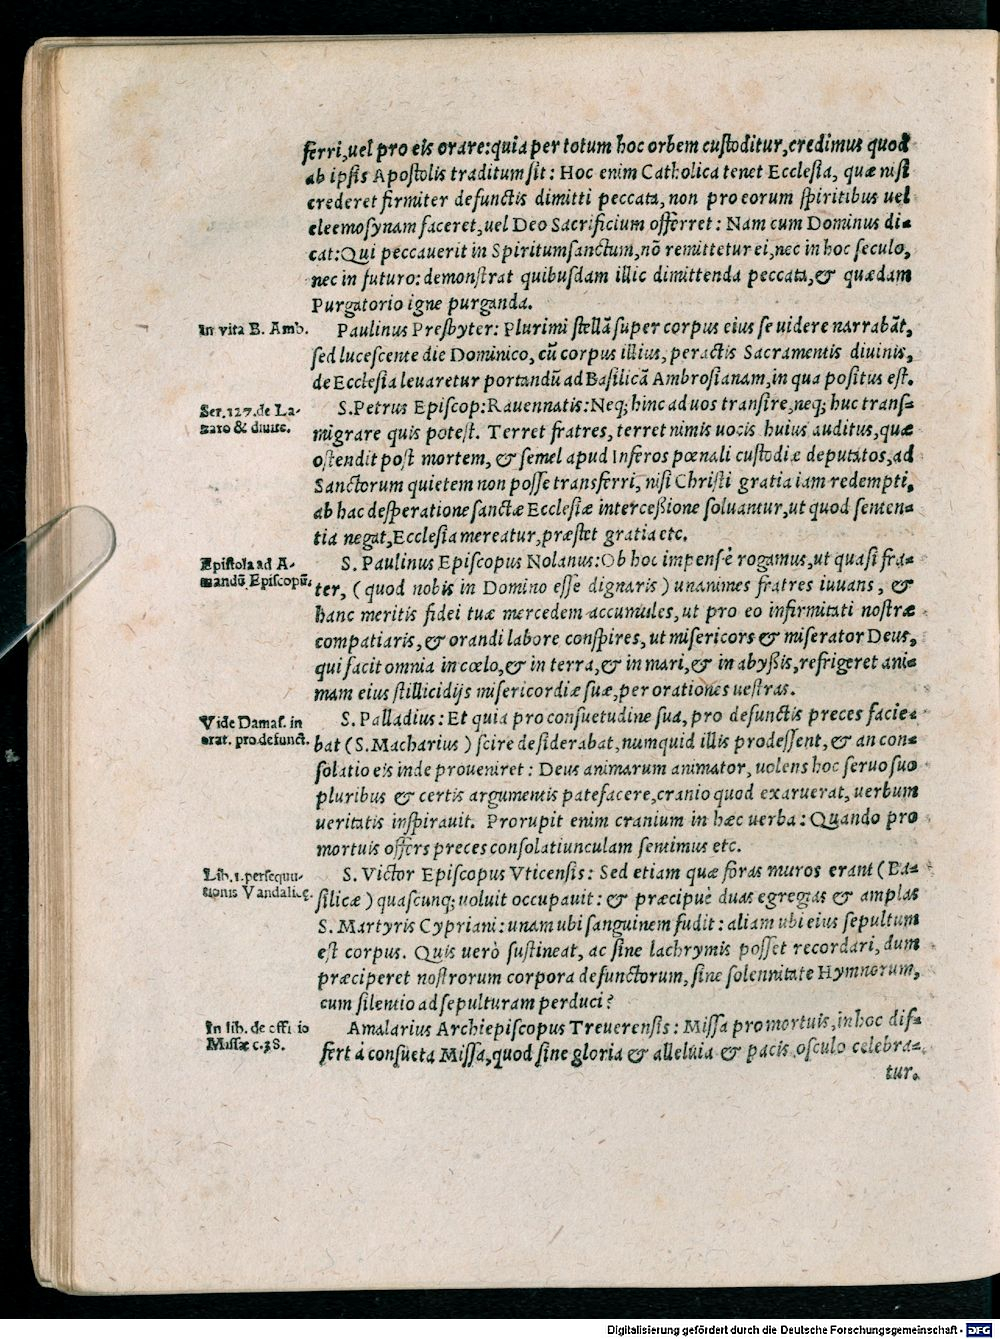 ferri, uel pro eis orare: quia per totum hoc orbem custoditur, credimus quod
ab ipsis Apostolis traditum sit: Hoc enim Catholica tenet Ecclesia, quæ nisi
crederet firmiter defunctis dimitti peccata, non pro eorum spiritibus uel
eleemosynam faceret, uel Deo Sacrificium offerret: Nam cum Dominus di-
cat: Qui peccauerit in Spiritumsanctum, nō remittetur ei, nec in hoc seculo,
nec in futuro: demonstrat quibusdam illic dimittenda peccata, & quædam
Purgatorio igne purganda.
In vita B. Amb.
Paulinus Presbyter: Plurimi stellā super corpus eius se uidere narrabāt,
sed lucescente die Dominico, cū corpus illius, peractis Sacramentis diuinis,
de Ecclesia leuaretur portandū ad Basilicā Ambrosianam, in qua positus est.
Ser. 127. de La-
zaro & diuite.
S. Petrus Episcop: Rauennatis: Neq; hinc ad uos transire, neq; huc trans-
migrare quis potest. Terret fratres, terret nimis uocis huius auditus, quæ
ostendit post mortem, & semel apud Inferos pœnali custodiæ deputatos, ad
Sanctorum quietem non posse transferri, nisi Christi gratia iam redempti,
ab hac desperatione sanctæ Ecclesiæ intercessione soluantur, ut quod senten-
tia negat, Ecclesia mereatur, præstet gratia etc.
Epistola ad A-
mandū Episcopū.
S. Paulinus Episcopus Nolanus: Ob hoc impensè rogamus, ut quasi fra-
ter, (quod nobis in Domino esse dignaris) unanimes fratres iuuans, &
hanc meritis fidei tuæ mercedem accumules, ut pro eo infirmitati nostræ
compatiaris, & orandi labore conspires, ut misericors & miserator Deus,
qui facit omnia in cœlo, & in terra, & in mari, & in abyssis, refrigeret ani-
mam eius stillicidijs misericordiæ suæ, per orationes uestras.
Vide Damas. in
orat. pro defunct.
S. Palladius: Et quia pro consuetudine sua, pro defunctis preces facie-
bat (S. Macharius) scire desiderabat, numquid illis prodessent, & an con-
solatio eis inde proueniret: Deus animarum animator, uolens hoc seruo suo
pluribus & certis argumentis patefacere, cranio quod exaruerat, uerbum
ueritatis inspirauit. Prorupit enim cranium in hæc uerba: Quando pro
mortuis offers preces consolatiunculam sentimus etc.
Lib. 1. persequu-
tionis Vandalicę.
S. Victor Episcopus Vticensis: Sed etiam quæ foras muros erant (Ba-
silicæ) quascunq; uoluit occupauit: & præcipuè duas egregias & amplas
S. Martyris Cypriani: unam ubi sanguinem fudit: aliam ubi eius sepultum
est corpus. Quis uerò sustineat, ac sine lachrymis posset recordari, dum
præciperet nostrorum corpora defunctorum, sine solennitate Hymnorum,
cum silentio ad sepulturam perduci?
In lib. de officio
Missæ c. 38.
Amalarius Archiepiscopus Treuerensis: Missa pro mortuis, in hoc dif-
fert à consueta Missa, quod sine gloria & alleluia & pacis osculo celebra-
tur.
Digitalisierung gefördert durch die Deutsche Forschungsgemeinschaft - DFG